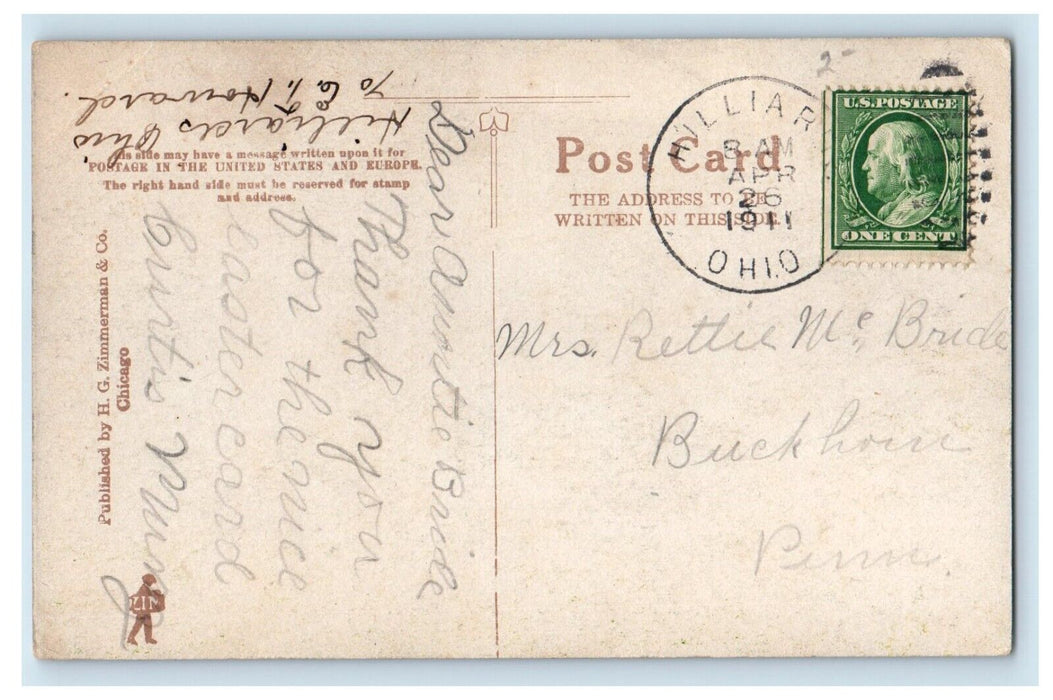 To C. T. Howard.
Hilliards Ohio
This side may have a message written upon it for
POSTAGE IN THE UNITED STATES AND EUROPE.
The right hand side must be reserved for stamp
and address.
Dear Auntie Bride
Thank you
for the nice
easter card
Curtis
Published by H. G. Zimmerman & Co.
Chicago
ZIM
Post Card
THE ADDRESS TO BE
WRITTEN ON THIS SIDE.
HILLIAR
8 AM
APR
26
1911
OHIO
2-
U.S. POSTAGE
ONE CENT
Mrs. Rettie Mc Bride
Buckhorn
Penn.